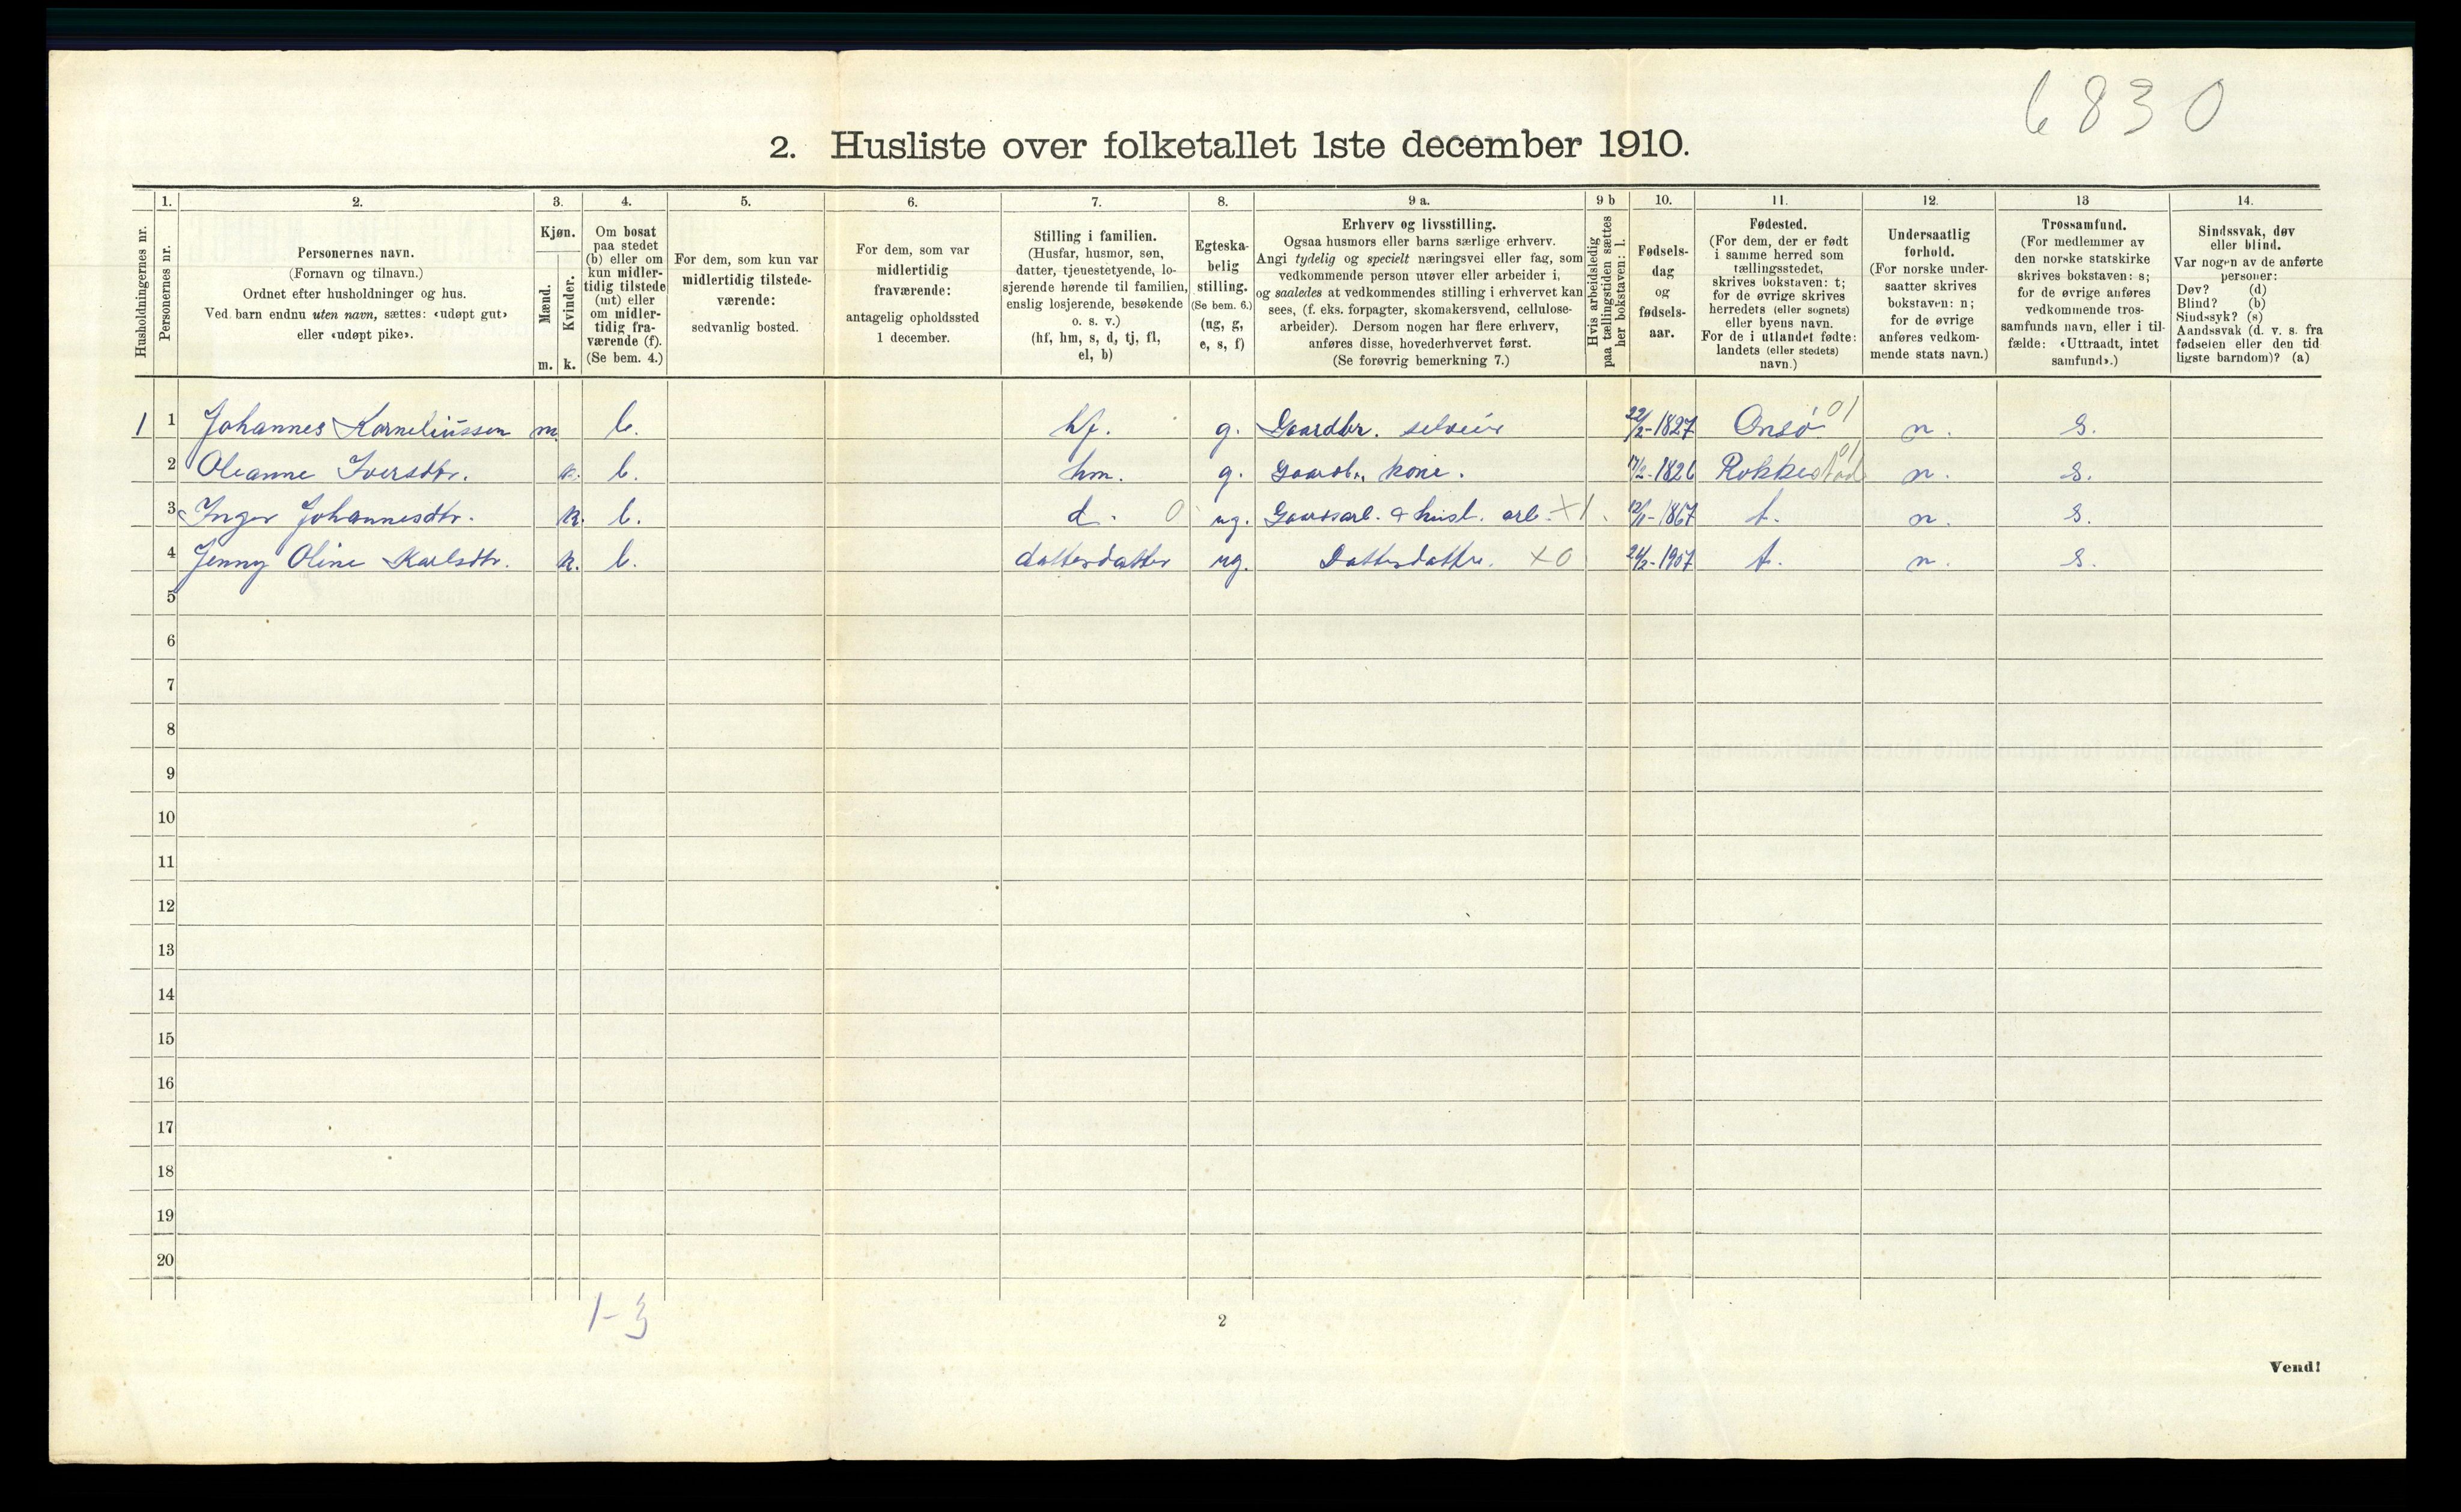 6830
2. Husliste over folketallet 1ste december 1910.
Husholdningernes nr.
1.
Personernes nr.
2.
Personernes navn.
(Fornavn og tilnavn.)
Ordnet efter husholdninger og hus.
Ved barn endnu uten navn, sættes: «udøpt gut»
eller «udøpt pike».
3.
Kjøn.
Mænd.
m.
Kvinder.
k.
4.
Om bosat
paa stedet
(b) eller om
kun midler-
tidig tilstede
(mt) eller
om midler-
tidig fra-
værende (f).
(Se bem. 4.)
5.
For dem, som kun var
midlertidig tilstede-
værende:
sedvanlig bosted.
6.
For dem, som var
midlertidig
fraværende:
antagelig opholdssted
1 december.
7.
Stilling i familien.
(Husfar, husmor, søn,
datter, tjenestetyende, lo-
sjerende hørende til familien,
enslig losjerende, besøkende
o. s. v.)
(hf, hm, s, d, tj, fl,
el, b)
8.
Egteska-
belig
stilling.
(Se bem. 6.)
(ug, g,
e, s, f)
9 a.
Erhverv og livsstilling.
Ogsaa husmors eller barns særlige erhverv.
Angi tydelig og specielt næringsvei eller fag, som
vedkommende person utøver eller arbeider i,
og saaledes at vedkommendes stilling i erhvervet kan
sees, (f. eks. forpagter, skomakersvend, cellulose-
arbeider). Dersom nogen har flere erhverv,
anføres disse, hovederhvervet først.
(Se forøvrig bemerkning 7.)
9 b
Hvis arbeidsledig
paa tællingstiden sættes
her bokstaven: l.
10.
Fødsels-
dag
og
fødsels-
aar.
11.
Fødested.
(For dem, der er født
i samme herred som
tællingsstedet,
skrives bokstaven: t;
for de øvrige skrives
herredets (eller sognets)
eller byens navn.
For de i utlandet fødte:
landets (eller stedets)
navn.)
12.
Undersaatlig
forhold.
(For norske under-
saatter skrives
bokstaven: n;
for de øvrige
anføres vedkom-
mende stats navn.)
13
Trossamfund.
(For medlemmer av
den norske statskirke
skrives bokstaven: s;
for de øvrige anføres
vedkommende tros-
samfunds navn, eller i til-
fælde: «Uttraadt, intet
samfund».)
14.
Sindssvak, døv
eller blind.
Var nogen av de anførte
personer:
Døv? (d)
Blind? (b)
Sindssyk? (s)
Aandssvak (d. v. s. fra
fødselen eller den tid
ligste barndom)? (a)
1 1 Johannes Korneliussen m. b. hf. g. Gaardbr. selveier 22/2-1827 Onsø 01 n. s.
2 Oleanne Iversdtr. k. b. hm. g. Gaardbr. kone. 1826 Rokkestad 01 n. s.
3 Inger Johannesdtr. k. b. d. 0 ug. Gaardsarb. & husl. arb. X1. 1867 t. n. s.
4 Jenny Oline Karlsdtr. k. b. datterdatter ug. Datterdatter. X0 1907 t. n. s.
5
6
7
8
9
10
11
12
13
14
15
16
17
18
19
20
1-3
2
Vend!